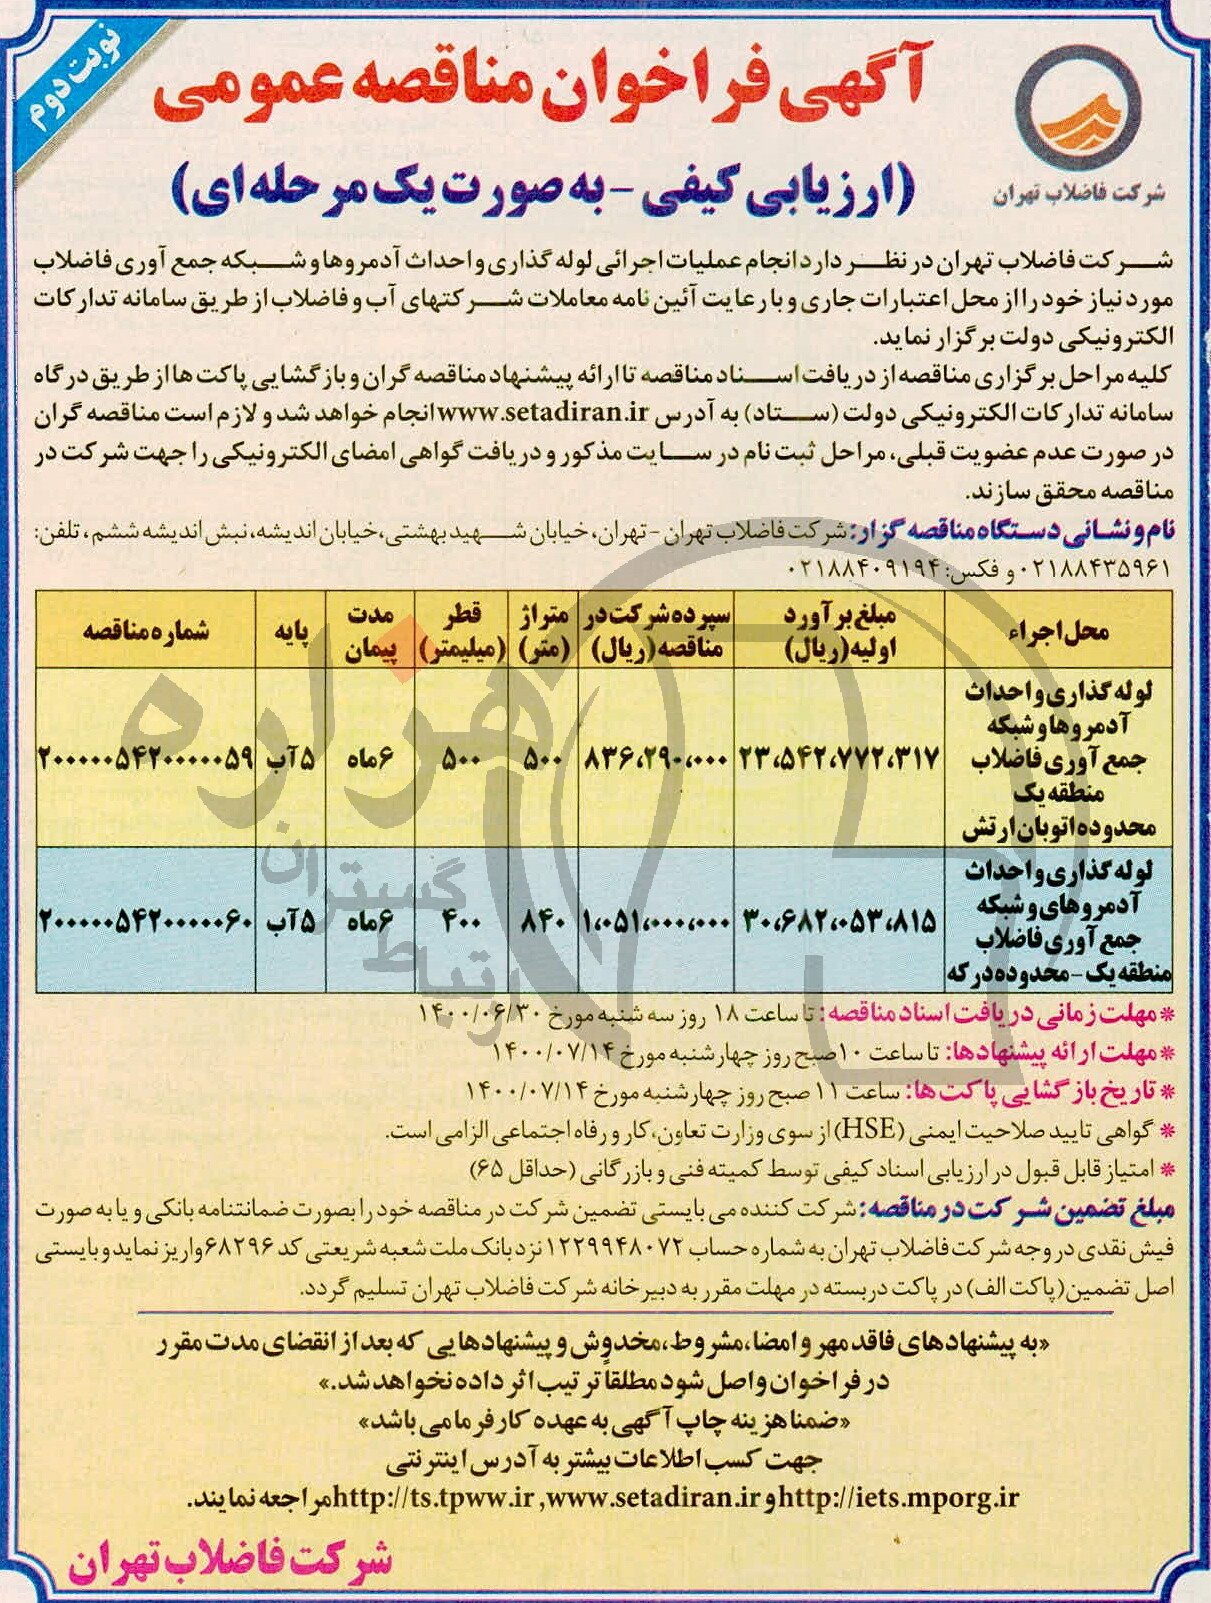 نوبت دوم
شرکت فاضلاب تهران
آگهی فراخوان مناقصه عمومی
(ارزیابی کیفی - به صورت یک مرحله ای)
شرکت فاضلاب تهران در نظر دارد انجام عملیات اجرائی لوله گذاری و احداث آدمروها و شبکه جمع آوری فاضلاب
مورد نیاز خود را از محل اعتبارات جاری و با رعایت آئین نامه معاملات شرکتهای آب و فاضلاب از طریق سامانه تدارکات
الکترونیکی دولت برگزار نماید.
کلیه مراحل برگزاری مناقصه از دریافت اسناد مناقصه تا ارائه پیشنهاد مناقصه گران و بازگشایی پاکت ها از طریق درگاه
سامانه تدارکات الکترونیکی دولت (ستاد) به آدرس www.setadiran.ir انجام خواهد شد و لازم است مناقصه گران
در صورت عدم عضویت قبلی، مراحل ثبت نام در سایت مذکور و دریافت گواهی امضای الکترونیکی را جهت شرکت در
مناقصه محقق سازند.
نام و نشانی دستگاه مناقصه گزار: شرکت فاضلاب تهران - تهران، خیابان شهید بهشتی، خیابان اندیشه، نبش اندیشه ششم، تلفن:
۰۲۱۸۸۴۳۵۹۶۱ و فکس: ۰۲۱۸۸۴۰۹۱۹۴
محل اجراء | مبلغ برآورد اولیه (ریال) | سپرده شرکت در مناقصه (ریال) | متراژ (متر) | قطر (میلیمتر) | مدت پیمان | پایه | شماره مناقصه
لوله گذاری و احداث آدمروها و شبکه جمع آوری فاضلاب منطقه یک محدوده اتوبان ارتش | ۲۳،۵۴۲،۷۷۲،۳۱۷ | ۸۳۶،۲۹۰،۰۰۰ | ۵۰۰ | ۵۰۰ | ۶ماه | ۵ آب | ۲۰۰۰۰۰۵۴۲۰۰۰۰۰۵۹
لوله گذاری و احداث آدمروهای و شبکه جمع آوری فاضلاب منطقه یک - محدوده درکه | ۳۰،۶۸۲،۰۵۳،۸۱۵ | ۱،۰۵۱،۰۰۰،۰۰۰ | ۸۴۰ | ۴۰۰ | ۶ماه | ۵ آب | ۲۰۰۰۰۰۵۴۲۰۰۰۰۰۶۰
* مهلت زمانی دریافت اسناد مناقصه: تا ساعت ۱۸ روز سه شنبه مورخ ۱۴۰۰/۰۶/۳۰
* مهلت ارائه پیشنهادها: تا ساعت ۱۰ صبح روز چهارشنبه مورخ ۱۴۰۰/۰۷/۱۴
* تاریخ بازگشایی پاکت ها: ساعت ۱۱ صبح روز چهارشنبه مورخ ۱۴۰۰/۰۷/۱۴
* گواهی تایید صلاحیت ایمنی (HSE) از سوی وزارت تعاون، کار و رفاه اجتماعی الزامی است.
* امتیاز قابل قبول در ارزیابی اسناد کیفی توسط کمیته فنی و بازرگانی (حداقل ۶۵)
مبلغ تضمین شرکت در مناقصه: شرکت کننده می بایستی تضمین شرکت در مناقصه خود را بصورت ضمانتنامه بانکی و یا به صورت
فیش نقدی در وجه شرکت فاضلاب تهران به شماره حساب ۱۲۲۹۹۴۸۰۷۲ نزد بانک ملت شعبه شریعتی کد ۶۸۲۹۶ واریز نماید و بایستی
اصل تضمین (پاکت الف) در پاکت دربسته در مهلت مقرر به دبیرخانه شرکت فاضلاب تهران تسلیم گردد.
«به پیشنهادهای فاقد مهر و امضا، مشروط، مخدوش و پیشنهادهایی که بعد از انقضای مدت مقرر
در فراخوان واصل شود مطلقاً ترتیب اثر داده نخواهد شد.»
«ضمنا هزینه چاپ آگهی به عهده کارفرما می باشد»
جهت کسب اطلاعات بیشتر به آدرس اینترنتی
http://iets.mporg.ir و http://ts.tpww.ir , www.setadiran.ir مراجعه نمایند.
شرکت فاضلاب تهران
هزاره
گستران
ارتباط